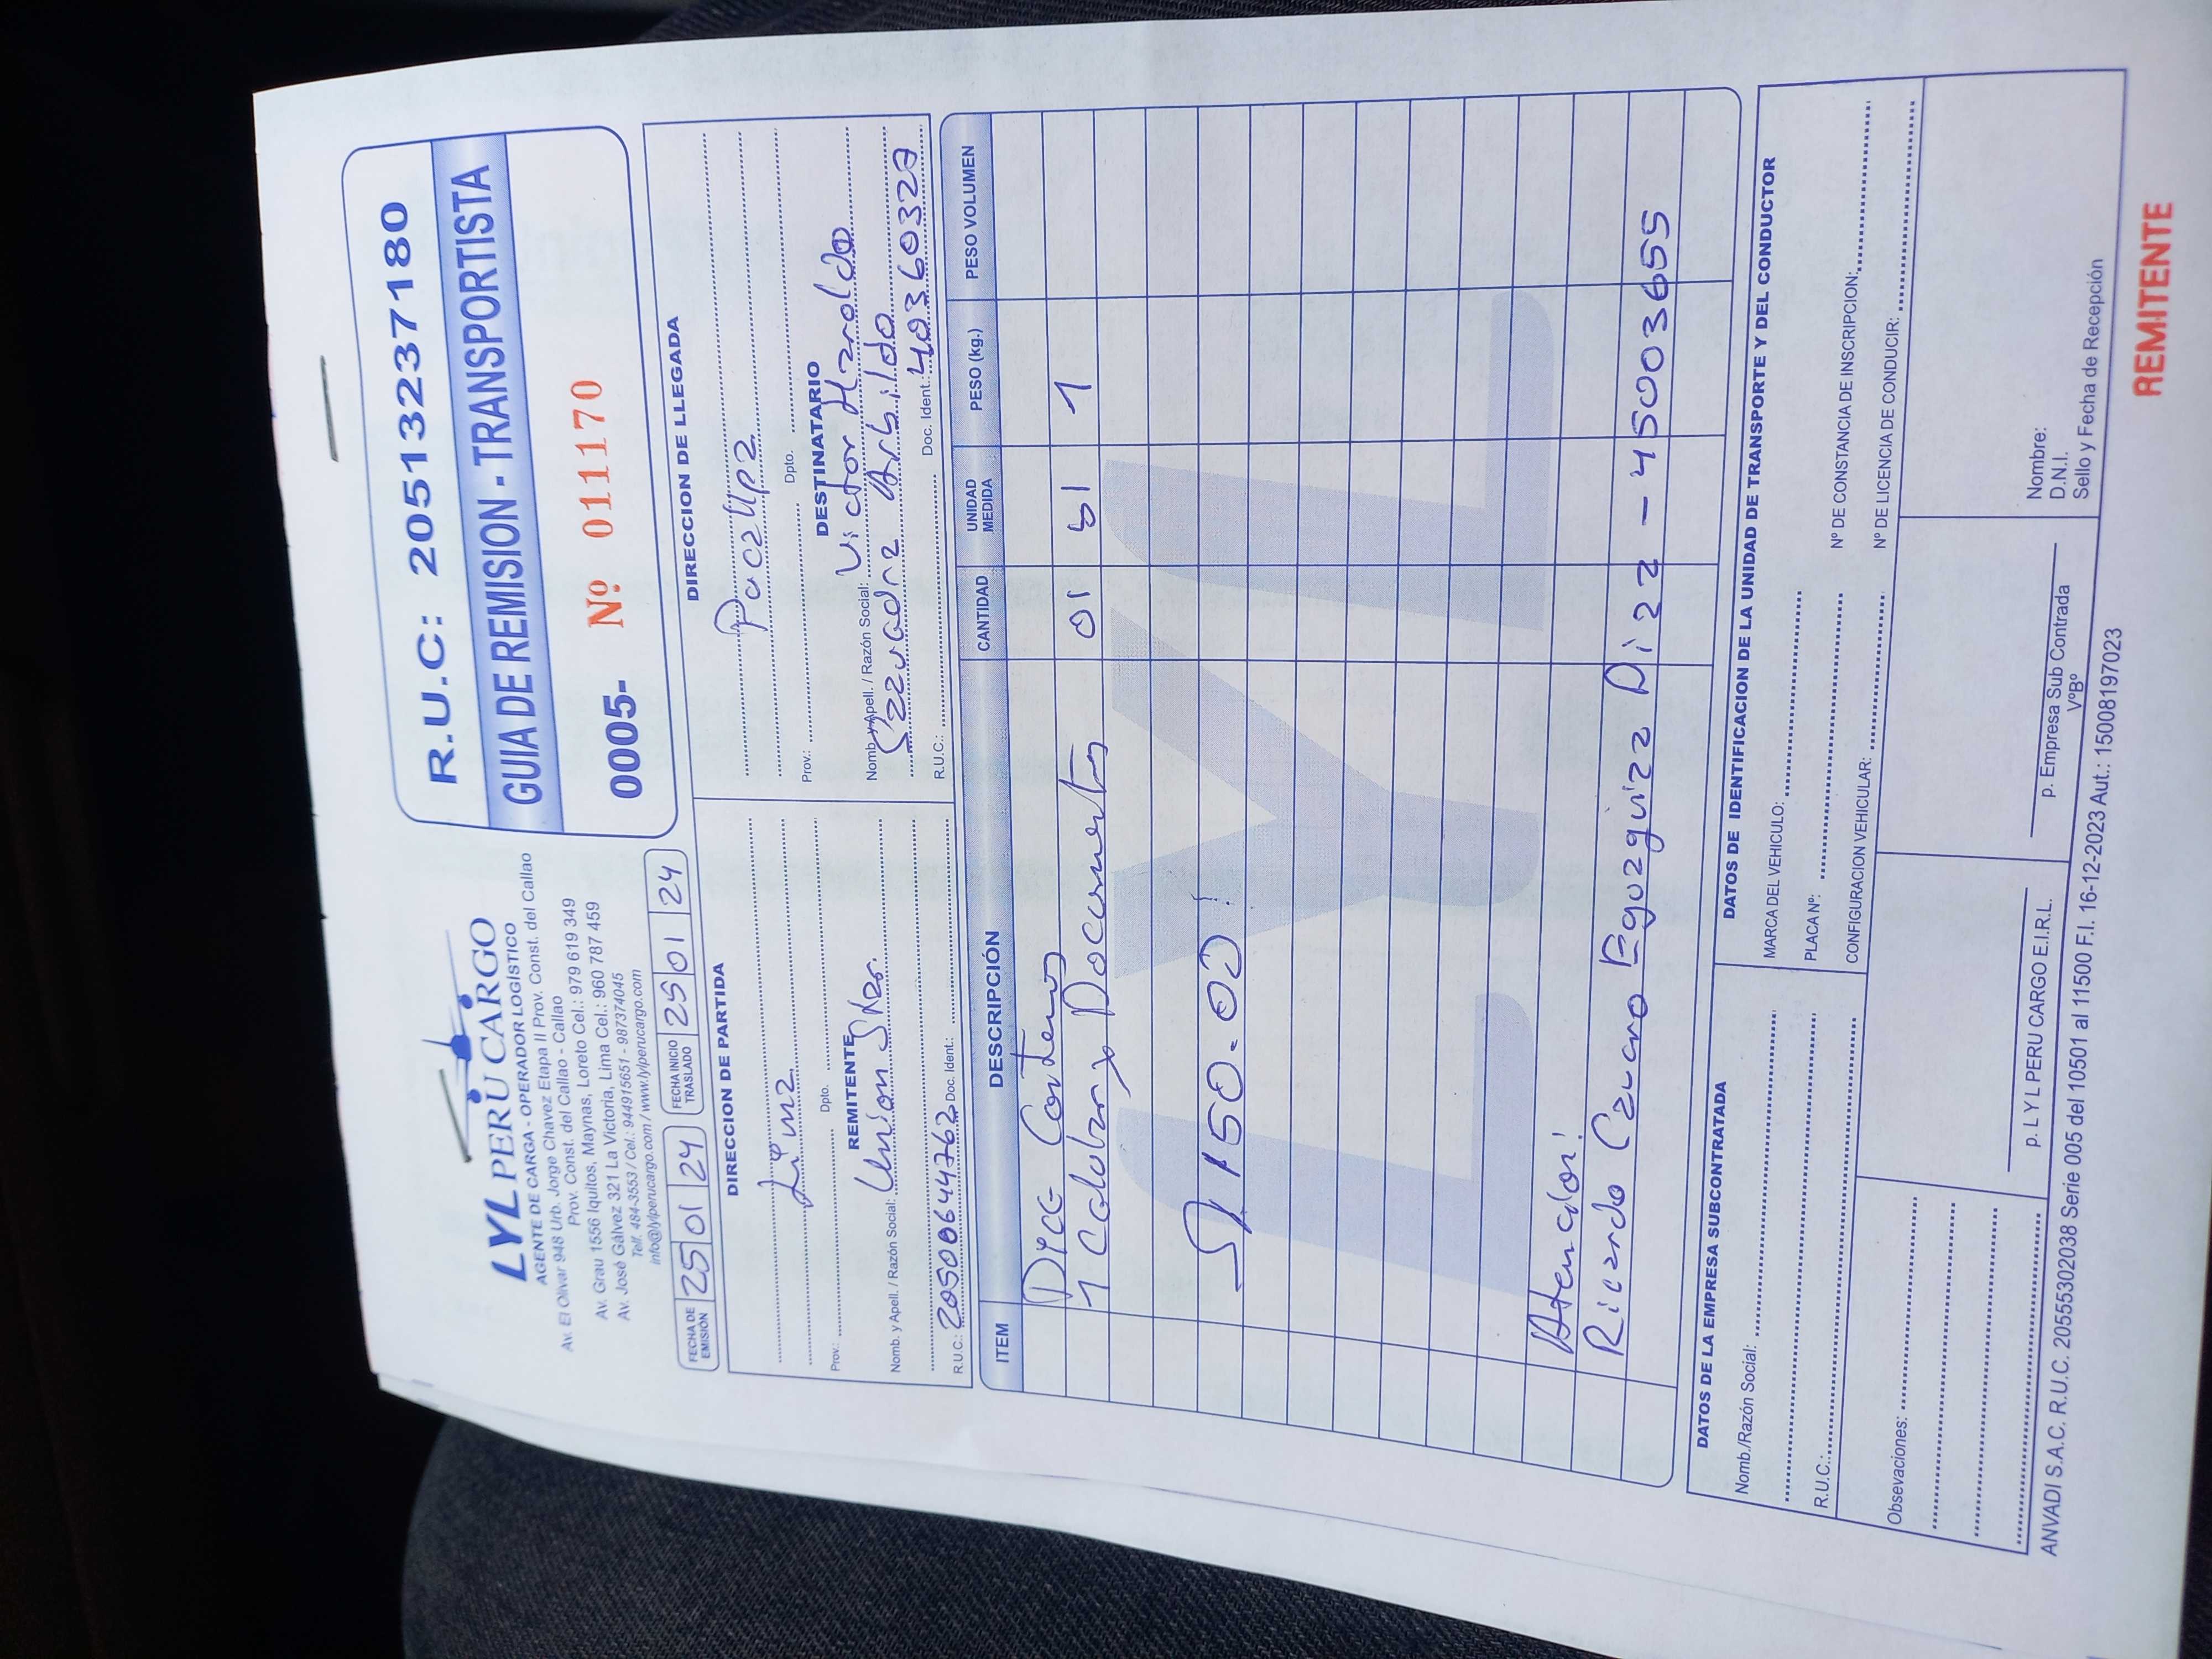 LYL PERU CARGO
AGENTE DE CARGA - OPERADOR LOGÍSTICO
Av. El Olivar 948 Urb. Jorge Chavez Etapa II Prov. Const. del Callao
Prov. Const. del Callao - Callao
Av. Grau 1556 Iquitos, Maynas, Loreto Cel.: 979 619 349
Av. José Gálvez 321 La Victoria, Lima Cel.: 960 787 459
Telf. 484-3553 / Cel.: 944915651 - 987374045
info@lylperucargo.com / www.lylperucargo.com
R.U.C: 20513237180
GUIA DE REMISION - TRANSPORTISTA
0005- Nº 011170
FECHA DE EMISIÓN 25 01 24 FECHA INICIO TRASLADO 25 01 24
DIRECCION DE PARTIDA
Lima
Prov.: Dpto.
REMITENTE
Nomb. y Apell. / Razón Social: Union Star.
R.U.C.: 20500644762 Doc. Ident.:
DIRECCION DE LLEGADA
Pucallpa
Prov.: Dpto.
DESTINATARIO
Nomb. y Apell. / Razón Social: Victor Haroldo
Saavadra Arbildo
R.U.C.: Doc. Ident.: 40360327
ITEM DESCRIPCIÓN CANTIDAD UNIDAD MEDIDA PESO (kg.) PESO VOLUMEN
Dice Contener
1 Celular y Documentos 01 bl 1
S/ 150.00!
Atencion!
Ricardo Cauno Eguzquiza Diaz - 45003655
DATOS DE LA EMPRESA SUBCONTRATADA
Nomb./Razón Social:
R.U.C.:
DATOS DE IDENTIFICACION DE LA UNIDAD DE TRANSPORTE Y DEL CONDUCTOR
MARCA DEL VEHICULO:
PLACA Nº: Nº DE CONSTANCIA DE INSCRIPCION:
CONFIGURACION VEHICULAR: Nº DE LICENCIA DE CONDUCIR:
Obsevaciones:
p. L Y L PERU CARGO E.I.R.L.
p. Empresa Sub Contrada
VºBº
Nombre:
D.N.I.
Sello y Fecha de Recepción
ANVADI S.A.C. R.U.C. 20555302038 Serie 005 del 10501 al 11500 F.I. 16-12-2023 Aut.: 15008197023
REMITENTE